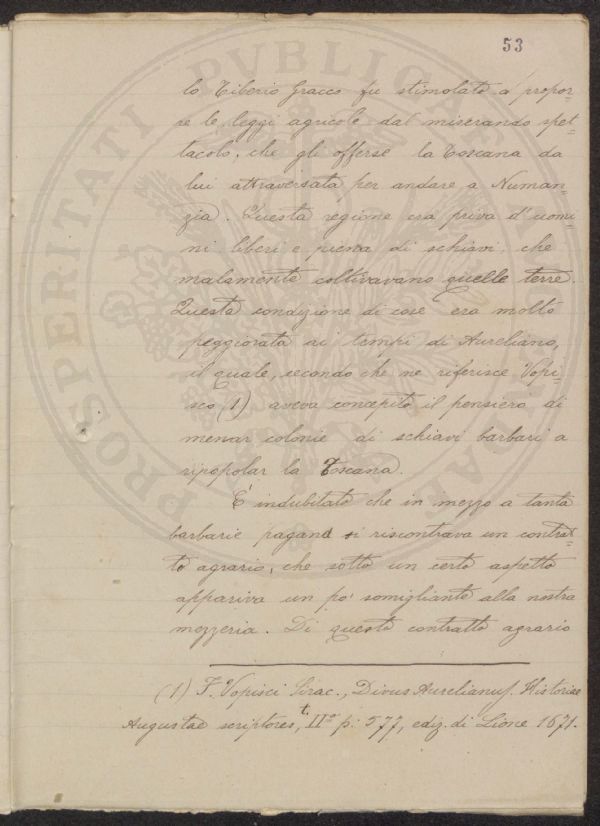 53
lo Tiberio Gracco fu stimolato a propor=
re le leggi agricole dal miserando spet=
tacolo, che gli offerse la Toscana da
lui attraversata per andare a Numan=
zia. Questa regione era priva d'uomi=
ni liberi e piena di schiavi, che
malamente coltivavano quelle terre.
Questa condizione di cose era molto
peggiorata ai tempi di Aureliano,
il quale, secondo che ne riferisce Vopi=
sco (1) aveva concepito il pensiero di
menar colonie di schiavi barbari a
ripopolar la Toscana.
E' indubitato che in mezzo a tanta
barbarie pagana si riscontrava un contrat=
to agrario, che sotto un certo aspetto
appariva un po' somigliante alla nostra
mezzeria. Di questo contratto agrario
(1) F. Vopisci Sirac., Divus Aurelianus. Historiae
Augustae scriptores, t. IIº p. 577, ediz. di Lione 1671.
PROSPERITATI PVBLICAE